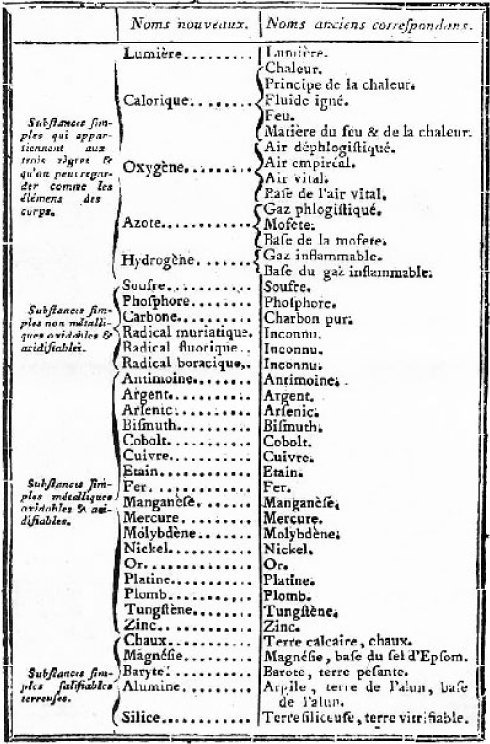 Noms nouveaux. Noms anciens correſpondans.
Lumière......... Lumière.
Chaleur.
Principe de la chaleur.
Calorique........ Fluide igné.
Feu.
Matière du feu & de la chaleur.
Subſtances ſim-
ples qui appar-
tiennent aux
trois règnes &
qu'on peut regar-
der comme les
élémens des
corps.
Air déphlogiſtiqué.
Oxygène......... Air empiréal.
Air vital.
Baſe de l'air vital.
Gaz phlogiſtiqué.
Azote........... Mofete.
Baſe de la mofete.
Hydrogène....... Gaz inflammable.
Baſe du gaz inflammable.
Subſtances ſim-
ples non métalli-
ques oxidables &
acidifiables.
Soufre.......... Soufre.
Phoſphore....... Phoſphore.
Carbone......... Charbon pur.
Radical muriatique. Inconnu.
Radical fluorique.. Inconnu.
Radical boracique,. Inconnu.
Subſtances ſim-
ples métalliques
oxidables & aci-
difiables.
Antimoine....... Antimoine.
Argent.......... Argent.
Arſenic......... Arſenic.
Biſmuth......... Biſmuth.
Cobolt.......... Cobolt.
Cuivre.......... Cuivre.
Etain........... Etain.
Fer............. Fer.
Manganèſe....... Manganèſe.
Mercure......... Mercure.
Molybdène....... Molybdène.
Nickel.......... Nickel.
Or.............. Or.
Platine......... Platine.
Plomb........... Plomb.
Tungſtène....... Tungſtène.
Zinc............ Zinc.
Subſtances ſim-
ples ſalifiables
terreuſes.
Chaux........... Terre calcaire, chaux.
Magnéſie........ Magnéſie, baſe du ſel d'Epſom.
Baryte.......... Barote, terre peſante.
Alumine......... Argile, terre de l'alun, baſe
de l'alun.
Silice.......... Terre ſiliceuſe, terre vitrifiable.